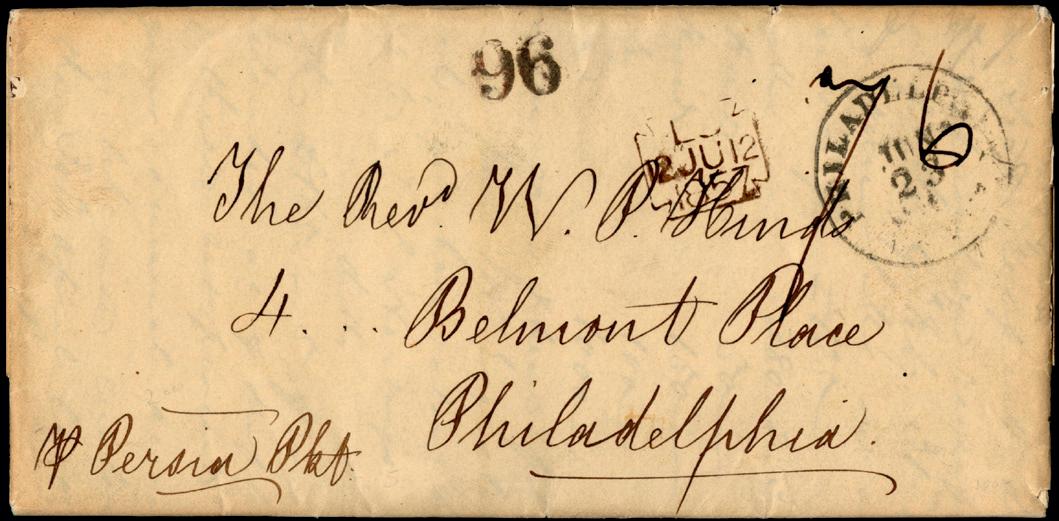 96
7/6
PHILADELPHIA
JUN
23
12 JU 12
1857
The Revd. W. P. Hinds
4... Belmont Place
Philadelphia.
℘ Persia Pkt.